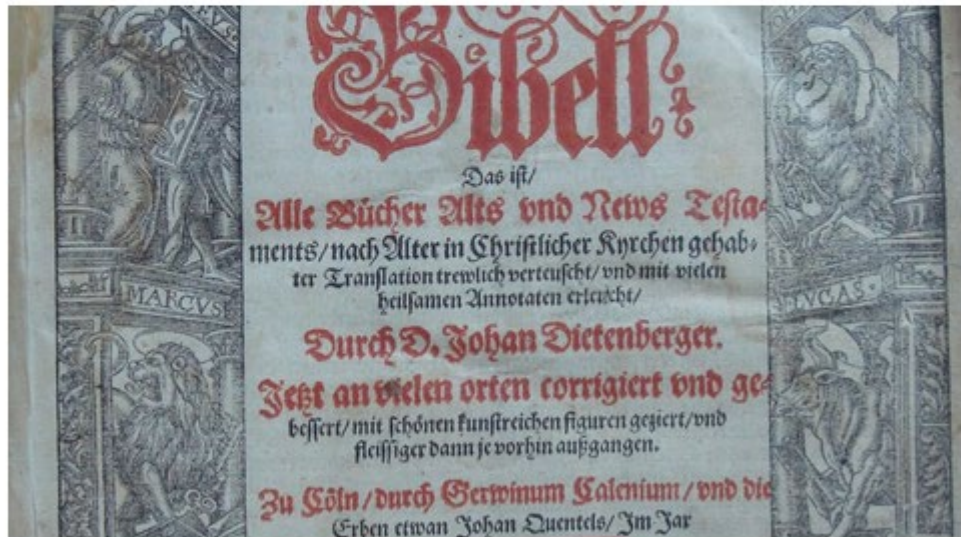 Bibell
Das ist/
Alle Bücher Alts vnd News Testa⸗
ments/ nach Alter in Christlicher Kyrchen gehab⸗
ter Translation trewlich verteuscht/ vnd mit vielen
heilsamen Annotaten erleucht/
Durch D. Johan Dietenberger.
Jetzt an vielen orten corrigiert vnd ge⸗
bessert/ mit schönen kunstreichen figuren geziert/ vnd
fleissiger dann je vorhin außgangen.
Zu Cöln/ durch Gerwinum Calenium/ vnd die
Erben etwan Johan Quentels/ Im Jar
MARCVS
LVCAS